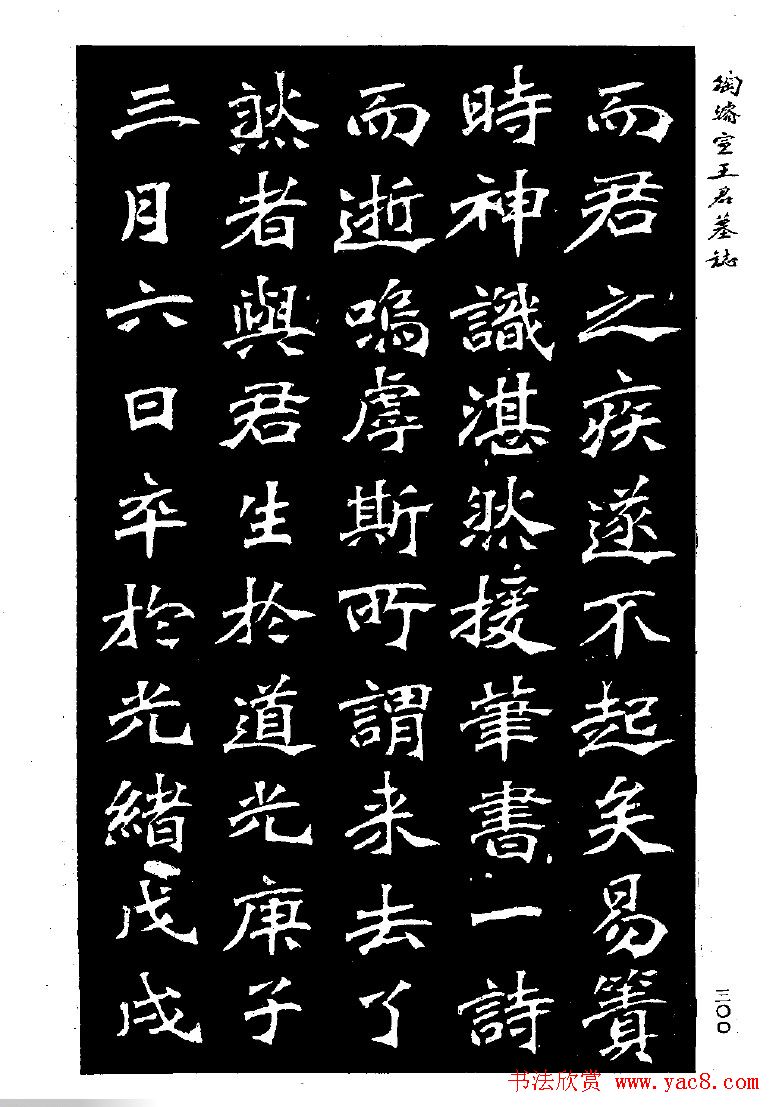 陶濬宣王君墓誌
而君之疾遂不起矣易簀
時神識湛然援筆書一詩
而逝嗚虖斯所謂来去了
然者與君生於道光庚子
三月六日卒於光緒戊戌
三〇〇
书法欣赏 www.yac8.com